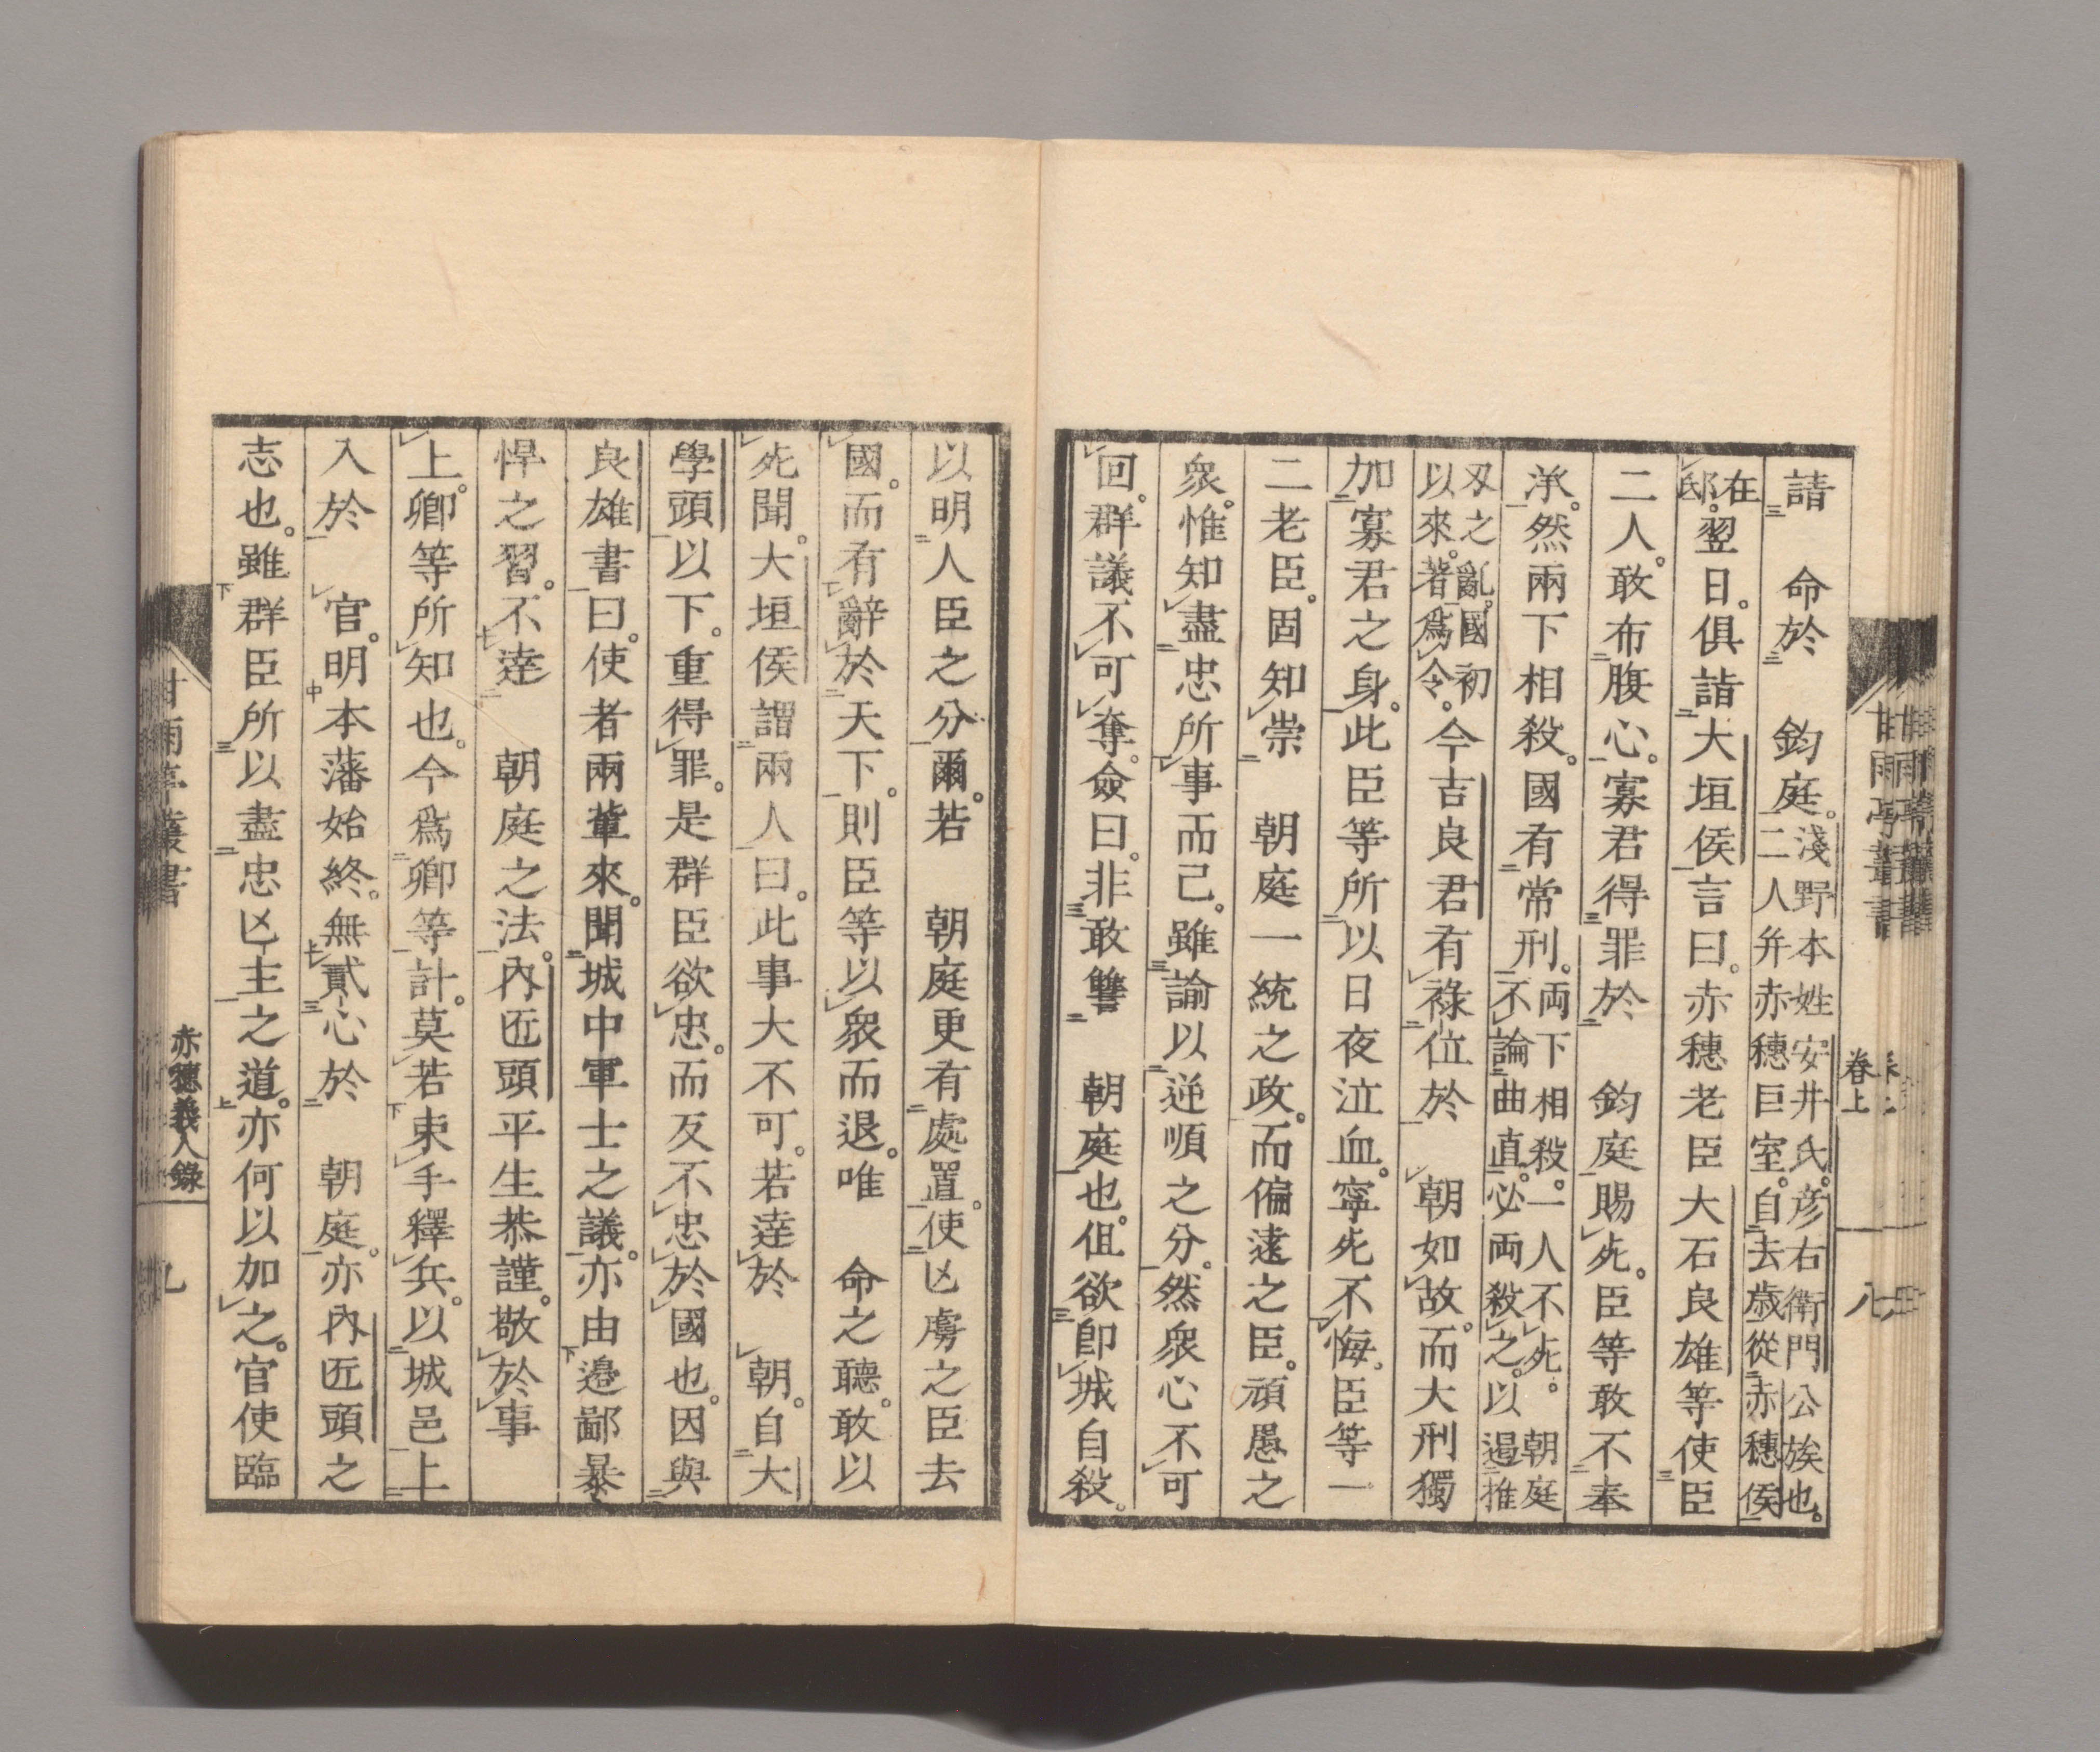 請　命於　鈞庭。淺野本姓安井氏。彦右衛門公族也。二人弁赤穗巨室。自去歳從赤穗侯
在邸。翌日。俱詣大垣侯言曰。赤穗老臣大石良雄等使臣
二人。敢布腹心。寡君得罪於　鈞庭賜死。臣等敢不奉
承。然兩下相殺。國有常刑。両下相殺。一人不死。朝庭不論曲直。必両殺之。以遏推
刄之亂。國初以來。著爲令。今吉良君有祿位於　朝如故。而大刑獨
加寡君之身。此臣等所以日夜泣血。寧死不悔。臣等一
二老臣。固知崇　朝庭一統之政。而偏遠之臣。頑愚之
衆。惟知盡忠所事而已。雖諭以逆順之分。然衆心不可
回。群議不可奪。僉曰。非敢讐　朝庭也。但欲即城自殺。
甘雨亭叢書　卷上　八
以明人臣之分爾。若　朝庭更有處置。使凶虜之臣去
國。而有辭於天下。則臣等以衆而退。唯　命之聽。敢以
死聞。大垣侯謂兩人曰。此事大不可。若達於　朝。自大
學頭以下。重得罪。是群臣欲忠。而反不忠於國也。因與
良雄書曰。使者兩輩來。聞城中軍士之議。亦由邊鄙暴
悍之習。不達　朝庭之法。內匠頭平生恭謹。敬於事
上。卿等所知也。今爲卿等計。莫若束手釋兵。以城邑上
入於　官。明本藩始終。無貳心於　朝庭。亦內匠頭之
志也。雖群臣所以盡忠凶主之道。亦何以加之。官使臨
甘雨亭叢書　赤穗義人錄　九